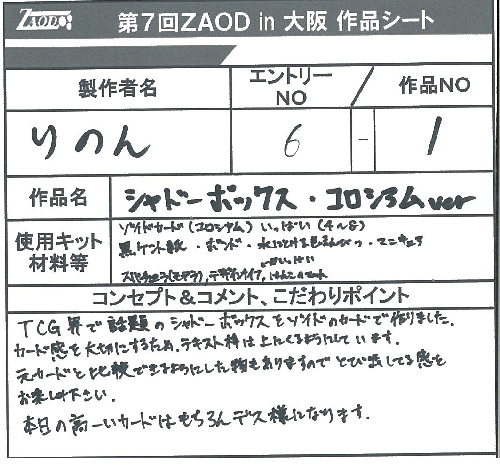 ZAOD
第7回ZAOD in 大阪 作品シート
製作者名
エントリーNO
作品NO
りのん
6 - 1
作品名
シャドーボックス・コロシアムver
使用キット材料等
ゾイドカード(コロシアム)いっぱい(4~8)
黒ケント紙・ボンド・水に溶ける色えんぴつ・マニキュア
デザインナイフ,
コンセプト&コメント、こだわりポイント
TCG界で話題のシャドーボックスをゾイドのカードで作りました。
カード感を大切にするため、テキスト枠は上にくるようにしています。
元カードと比較できるようにした物もありますのでとび出してる感を
お楽しみ下さい。
本日の高いカードはもちろんデス様になります。